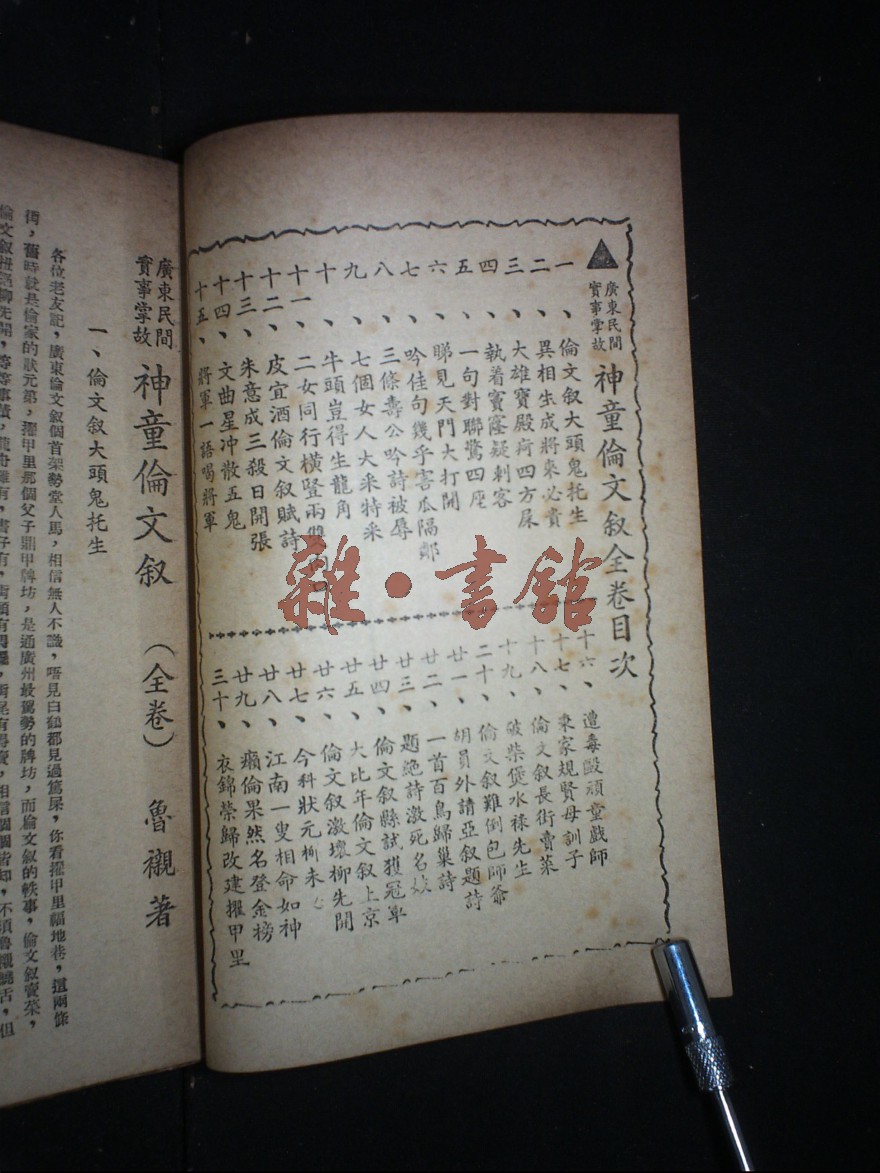 廣東民間
實事掌故
神童倫文叙全卷目次
一、倫文叙大頭鬼托生
二、異相生成將來必貴
三、大雄寶殿疴四方屎
四、執着寶窿疑刺客
五、一句對聯驚四座
六、睇見天門大打開
七、吟佳句幾乎害瓜隔鄰
八、三條壽公吟詩被辱
九、七個女人大釆特釆
十、牛頭豈得生龍角
十一、二女同行橫豎兩
十二、皮宜酒倫文叙賦詩
十三、朱意成三殺日開張
十四、文曲星冲散五鬼
十五、將軍一語喝將軍
十六、遭毒毆頑童戲師
十七、東家規賢母訓子
十八、倫文叙長街賣菜
十九、破柴煲水祿先生
二十、倫文叙難倒包師爺
廿一、胡員外請亞叙題詩
廿二、一首百鳥歸巢詩
廿三、題絶詩激死名妓
廿四、倫文叙縣試獲冠軍
廿五、大比年倫文叙上京
廿六、倫文叙激壞柳先開
廿七、今科狀元斬未
廿八、江南一叟相命如神
廿九、癩倫果然名登金榜
三十、衣錦榮歸改建擢甲里
雜·書館
廣東民間
實事掌故
神童倫文叙（全卷）　魯襯著
一、倫文叙大頭鬼托生
各位老友記，廣東倫文叙個首架勢堂人馬，相信無人不識，唔見白鶴都見過篤屎，你看擢甲里福地巷，這兩條
街，舊時就是倫家的狀元第，擢甲里那個父子鼎甲牌坊，是通廣州最駕勢的牌坊，而倫文叙的軼事，倫文叙賣菜，